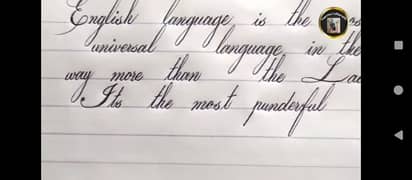 English language is the os
universal language in the
way more than the La
Its the most punderful